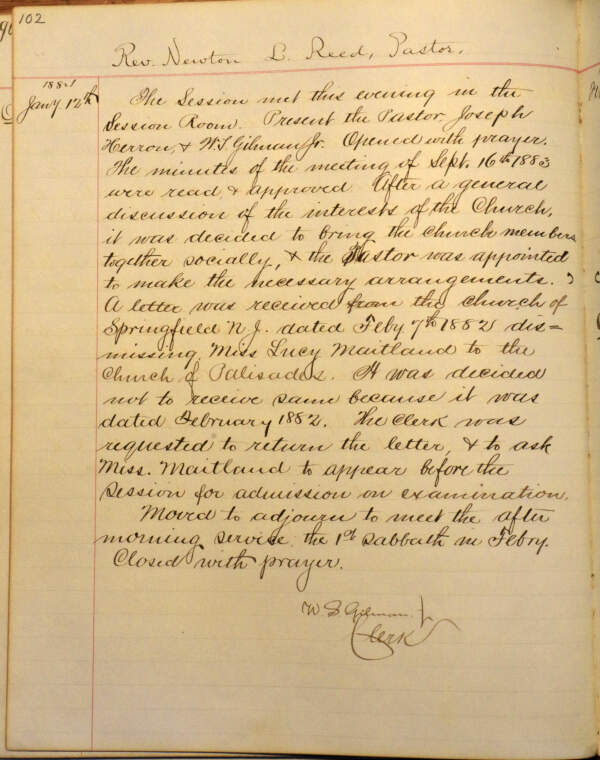 102
Rev. Newton L. Reed, Pastor.
Jany 12th
The Session met this evening in the
Session Room. Present the Pastor, Joseph
Herron, & W. S. Gilman Jr. Opened with prayer.
The minutes of the meeting of Sept. 16th 1883
were read, & approved. After a general
discussion of the interests of the Church,
it was decided to bring the church members
together socially, & the Pastor was appointed
to make the necessary arrangements.
A letter was received from the church of
Springfield N. J. dated Feby 7th 1882 dis=
missing Miss Lucy Maitland to the
Church of Palisades. It was decided
not to receive same because it was
dated February 1882. The Clerk was
requested to return the letter, & to ask
Miss. Maitland to appear before the
session for admission on examination.
Moved to adjourn to meet the after
morning service, the 1st Sabbath in Febry.
Closed with prayer.
W S Gilman Jr
Clerk